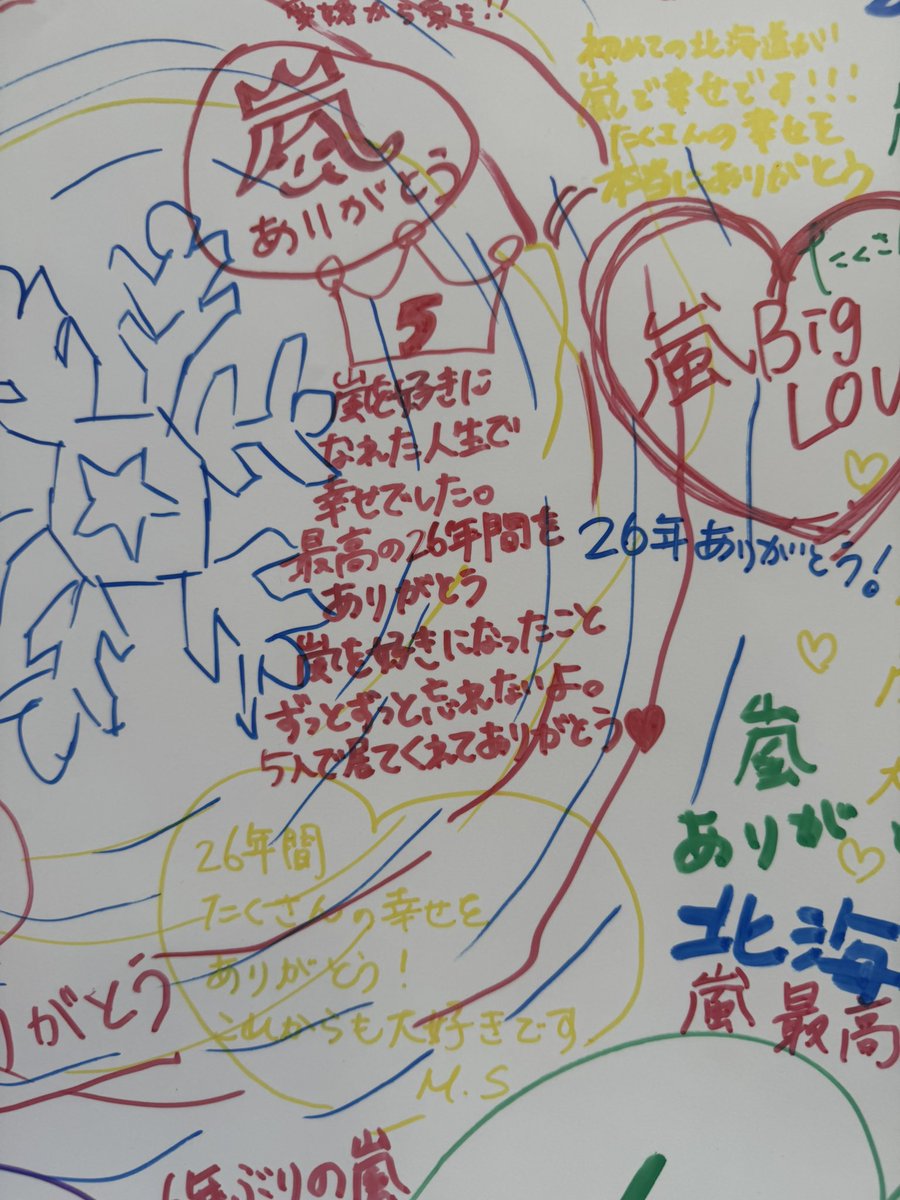 愛媛から愛を!!
嵐
ありがとう
初めての北海道が
嵐で幸せです!!!
たくさんの幸せを
本当にありがとう
たくさ
嵐 Big
LOV
5
嵐を好きに
なれた人生で
幸せでした。
最高の26年間を
ありがとう
嵐を好きになったこと
ずっとずっと忘れないよ。
5人で居てくれてありがとう
26年ありがとう!
嵐
ありが
北海
嵐 最高
26年間
たくさんの幸せを
ありがとう!
これからも大好きです
M.S
りがとう
年ぶりの嵐